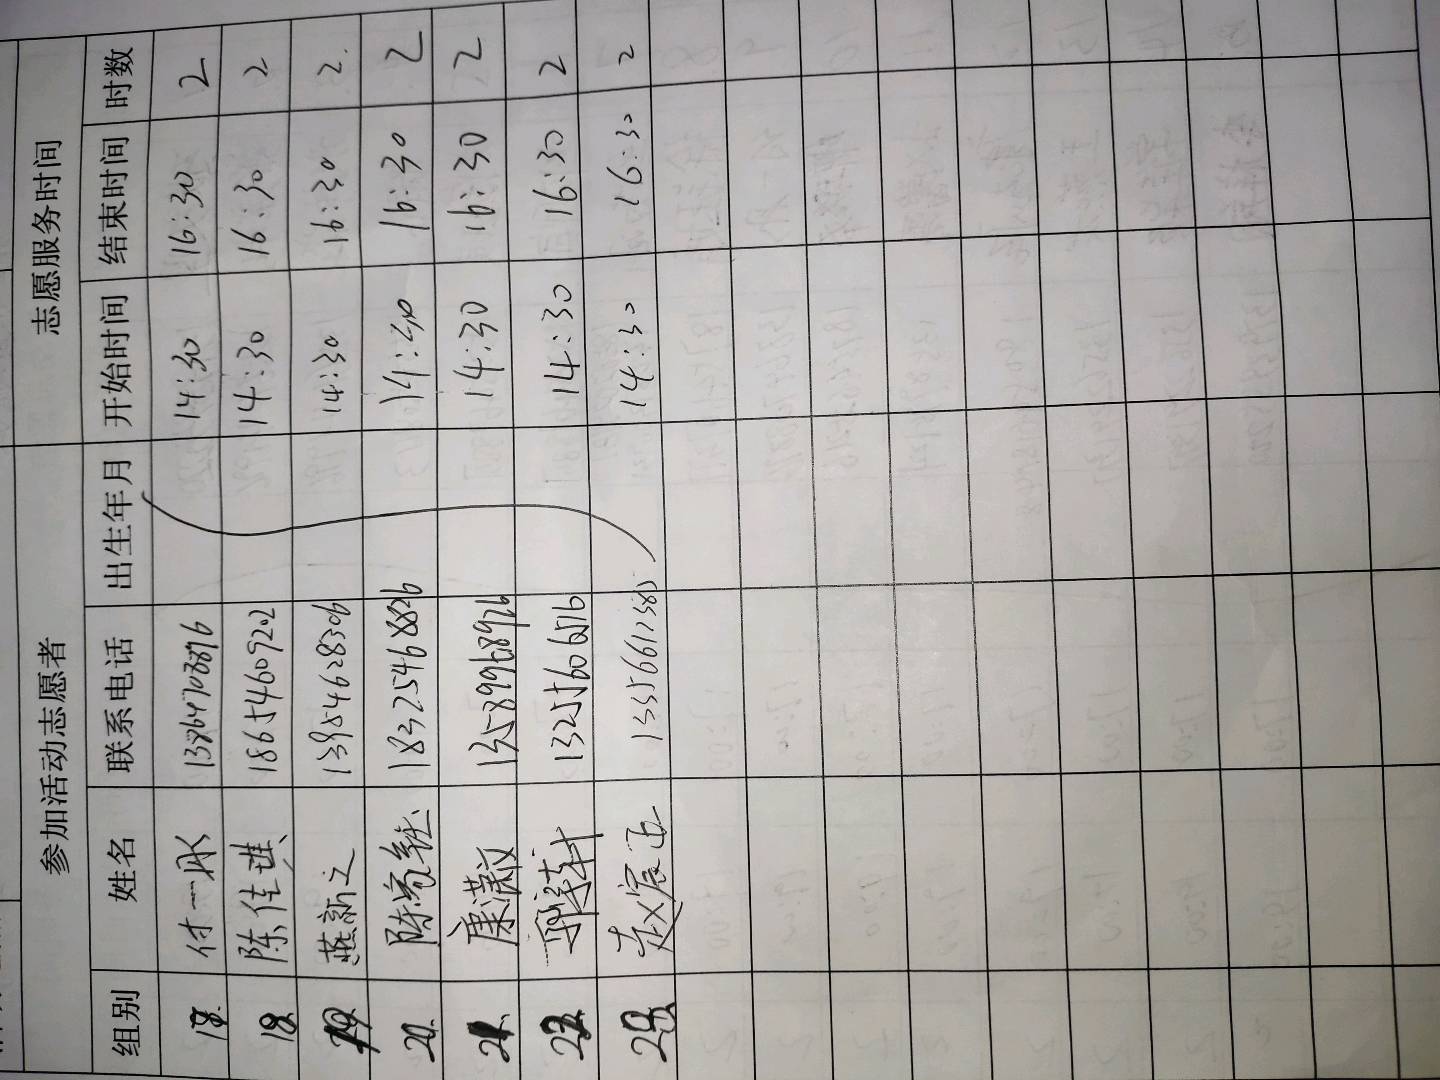 参加活动志愿者 志愿服务时间
组别 姓名 联系电话 出生年月 开始时间 结束时间 时数
18 付一冰 13864708896 14:30 16:30 2
18 陈佳琪 18654609202 14:30 16:30 2
19 燕新之 13954628306 14:30 16:30 2
20 陈 18325468826 14:30 16:30 2
21 康潇文 13589968926 14:30 16:30 2
22 13255606516 14:30 16:30 2
赵宸 14:30 16:30 2